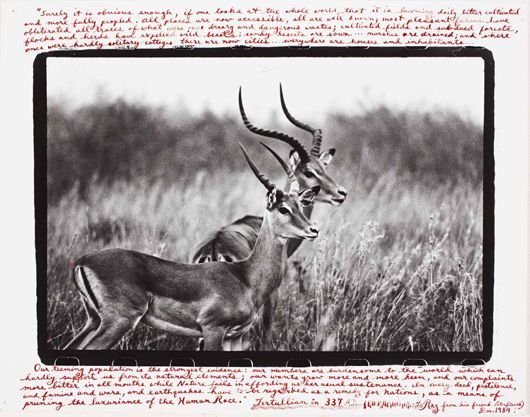 "Surely it is obvious enough, if one looks at the whole world, that it is becoming daily better cultivated
and more fully peopled. All places are now accessible, all are well known, most pleasant farms have
obliterated all traces of what were once dreary and dangerous wastes; cultivated fields and subdued forests,
flocks and herds have expelled wild beasts; sandy deserts are sown ... marshes are drained; and where
once were hardly solitary cottages there are now cities ... everywhere are houses and inhabitants.
Our teeming population is the strongest evidence: our numbers are burdensome to the world, which can
hardly support us from its natural elements; our wants grow more and more keen, and our complaints
more bitter in all mouths while Nature fails in affording us her usual sustenance. In every deed, pestilence,
and famine and wars, and earthquakes have to be regarded as a remedy for nations, as a means of
pruning the luxuriance of the Human Race." Tertullian in 337 A.D. from his friend
Dec. 1984